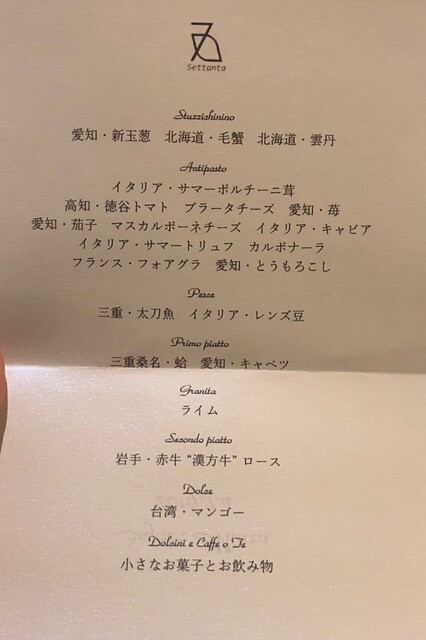 Settanta
Stuzzichinino
愛知・新玉葱　北海道・毛蟹　北海道・雲丹
Antipasto
イタリア・サマーポルチーニ茸
高知・徳谷トマト　ブラータチーズ　愛知・苺
愛知・茄子　マスカルポーネチーズ　イタリア・キャビア
イタリア・サマートリュフ　カルボナーラ
フランス・フォアグラ　愛知・とうもろこし
Pesce
三重・太刀魚　イタリア・レンズ豆
Primo piatto
三重桑名・蛤　愛知・キャベツ
Granita
ライム
Secondo piatto
岩手・赤牛 “漢方牛” ロース
Dolce
台湾・マンゴー
Dolcini e Caffe o Te
小さなお菓子とお飲み物